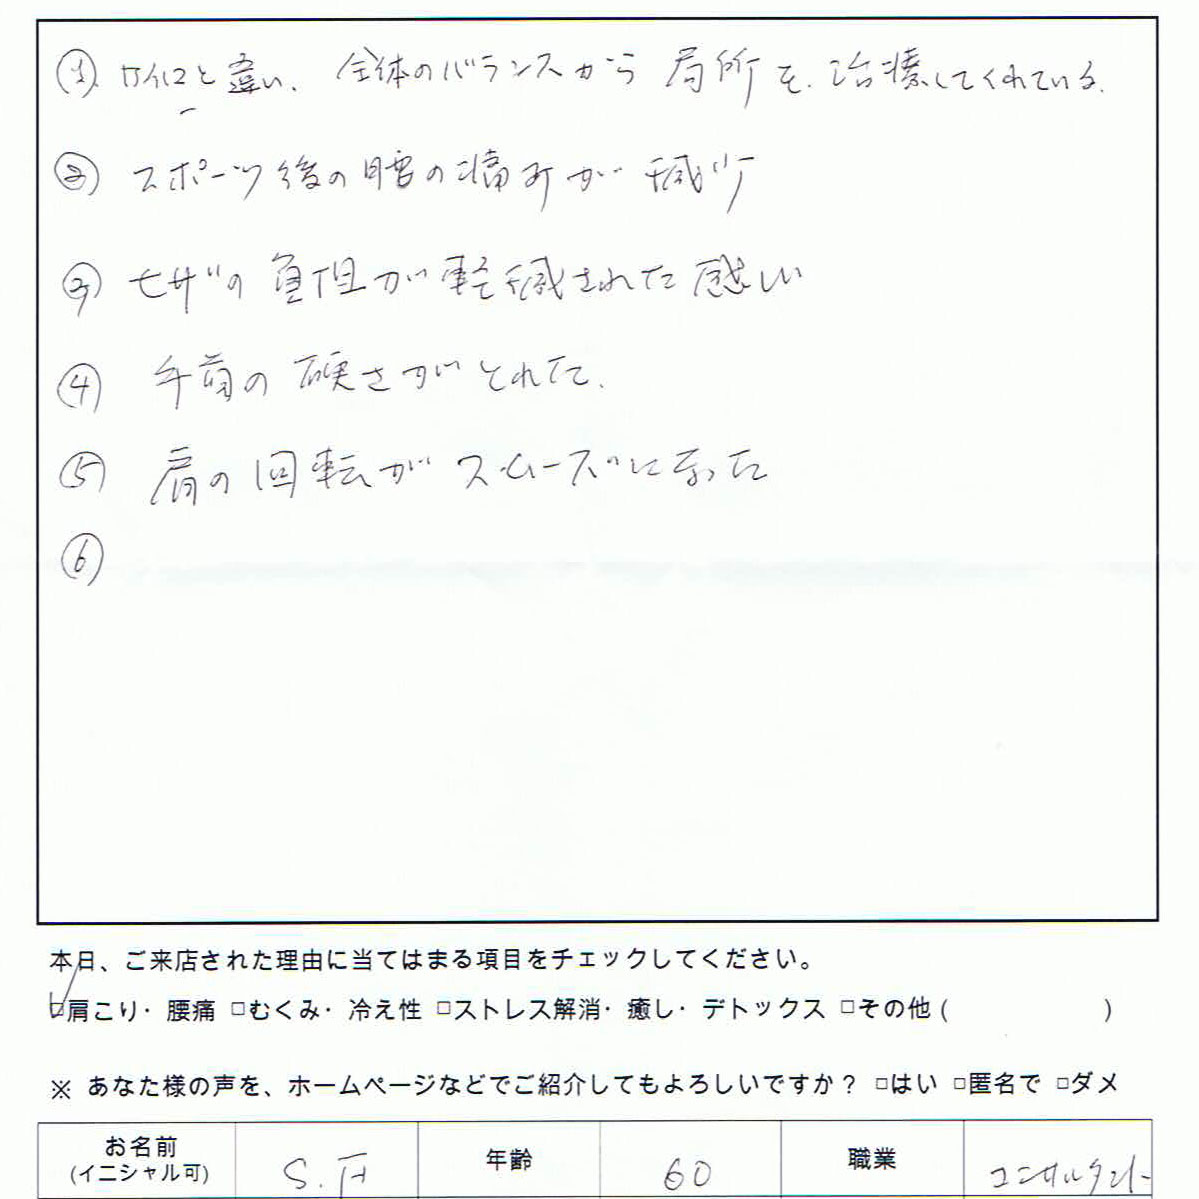 ① カイロと違い、全体のバランスから局所を、治療してくれている.
② スポーツ後の腰の痛みが減少
③ ヒザの負担が軽減された感じ
④ 手首の硬さがとれた.
⑤ 肩の回転がスムーズになった
⑥
本日、ご来店された理由に当てはまる項目をチェックしてください。
☑肩こり・腰痛 □むくみ・冷え性 □ストレス解消・癒し・デトックス □その他 ( )
※ あなた様の声を、ホームページなどでご紹介してもよろしいですか？ □はい □匿名で □ダメ
お名前 (イニシャル可) S.F 年齢 60 職業 コンサルタント